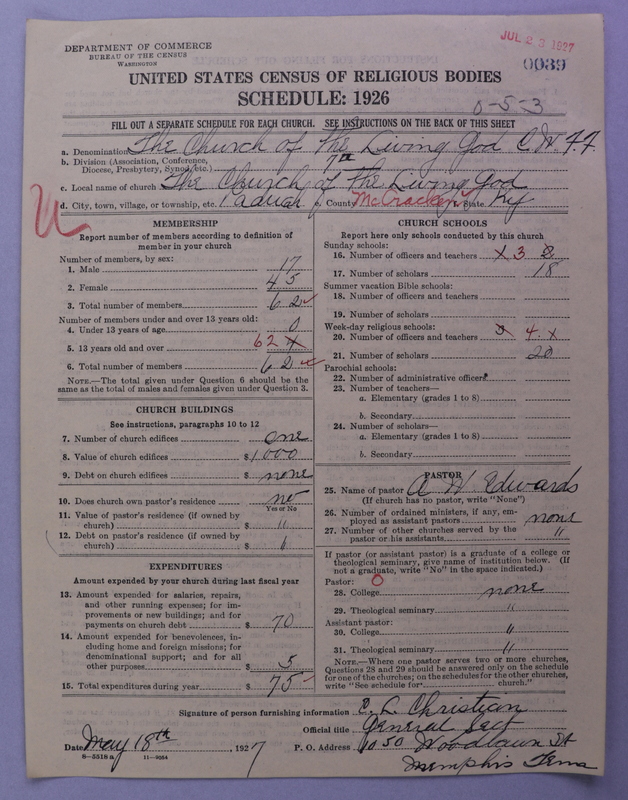 DEPARTMENT OF COMMERCE
BUREAU OF THE CENSUS
WASHINGTON
JUL 23 1927
0039
UNITED STATES CENSUS OF RELIGIOUS BODIES
SCHEDULE: 1926
0-5-3
FILL OUT A SEPARATE SCHEDULE FOR EACH CHURCH. SEE INSTRUCTIONS ON THE BACK OF THIS SHEET
a. Denomination The Church of The Living God C.W.F.F.
b. Division (Association, Conference, Diocese, Presbytery, Synod, etc.) 7th
c. Local name of church The Church of The Living God
d. City, town, village, or township, etc. Paducah County McCracken State Ky
MEMBERSHIP
Report number of members according to definition of member in your church
Number of members, by sex:
1. Male 17
2. Female 45
3. Total number of members 62
Number of members under and over 13 years old:
4. Under 13 years of age 0
5. 13 years old and over 62 x
6. Total number of members 62
NOTE.—The total given under Question 6 should be the same as the total of males and females given under Question 3.
CHURCH BUILDINGS
See instructions, paragraphs 10 to 12
7. Number of church edifices one
8. Value of church edifices $ 1000
9. Debt on church edifices $ none
10. Does church own pastor's residence no
Yes or No
11. Value of pastor's residence (if owned by church) $ "
12. Debt on pastor's residence (if owned by church) $
EXPENDITURES
Amount expended by your church during last fiscal year
13. Amount expended for salaries, repairs, and other running expenses; for improvements or new buildings; and for payments on church debt $ 70
14. Amount expended for benevolences, including home and foreign missions; for denominational support; and for all other purposes $ 5
15. Total expenditures during year $ 75
CHURCH SCHOOLS
Report here only schools conducted by this church
Sunday schools:
16. Number of officers and teachers x 3
17. Number of scholars 18
Summer vacation Bible schools:
18. Number of officers and teachers
19. Number of scholars
Week-day religious schools:
20. Number of officers and teachers 3 4 x
21. Number of scholars 20
Parochial schools:
22. Number of administrative officers
23. Number of teachers—
a. Elementary (grades 1 to 8)
b. Secondary
24. Number of scholars—
a. Elementary (grades 1 to 8)
b. Secondary
PASTOR
25. Name of pastor A W Edwards
(If church has no pastor, write "None")
26. Number of ordained ministers, if any, employed as assistant pastors none
27. Number of other churches served by the pastor or his assistants "
If pastor (or assistant pastor) is a graduate of a college or theological seminary, give name of institution below. (If not a graduate, write "No" in the space indicated.)
Pastor:
28. College none
29. Theological seminary "
Assistant pastor:
30. College "
31. Theological seminary "
NOTE.—Where one pastor serves two or more churches, Questions 28 and 29 should be answered only on the schedule for one of the churches; on the schedules for the other churches, write "See schedule for church."
Signature of person furnishing information C. L. Christian
Official title General Sect
Date May 18th, 1927 P. O. Address 1050 Woodlawn St
Memphis Tenn
8—5518 a 11—9864